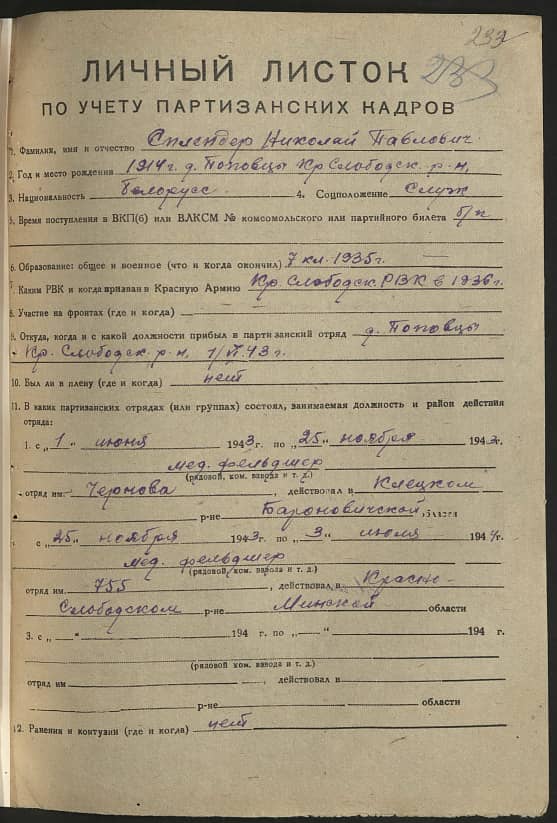 233
233
ЛИЧНЫЙ ЛИСТОК
ПО УЧЕТУ ПАРТИЗАНСКИХ КАДРОВ
1. Фамилия, имя и отчество Николай Павлович
2. Год и место рождения 1914 г. д. Поповцы Кр Слободск. р-н,
3. Национальность белорусс. 4. Соцположение Служ
5. Время поступления в ВКП(б) или ВЛКСМ № комсомольского или партийного билета б/п
6. Образование: общее и военное (что и когда окончил) 7 кл. 1935 г.
7. Каким РВК и когда призван в Красную Армию Кр. Слободск. РВК в 1936 г.
8. Участие на фронтах (где и когда)
9. Откуда, когда и с какой должности прибыл в партизанский отряд д. Поповцы
Кр. Слободск. р-н, 1/VI.43 г.
10. Был ли в плену (где и когда) нет
11. В каких партизанских отрядах (или группах) состоял, занимаемая должность и район действия
отряда:
1. с „1" июня 1943 г. по „25" ноября 1943 г.
мед. фельдшер
(рядовой, ком. взвода и т. д.)
отряд им. Чернова, действовал в Клецком
р-не Бароновичской области
с „25" ноября 1943 г. по „3" июля 1944 г.
мед. фельдшер
(рядовой, ком. взвода и т. д.)
отряд им. 755, действовал в Красно-
Слободском р-не Минской области
3. с „ — " 194 г. по „ — " 194 г.
(рядовой ком. взвода и т. д.)
отряд им , действовал в
р-не области
12. Ранения и контузии (где и когда) нет